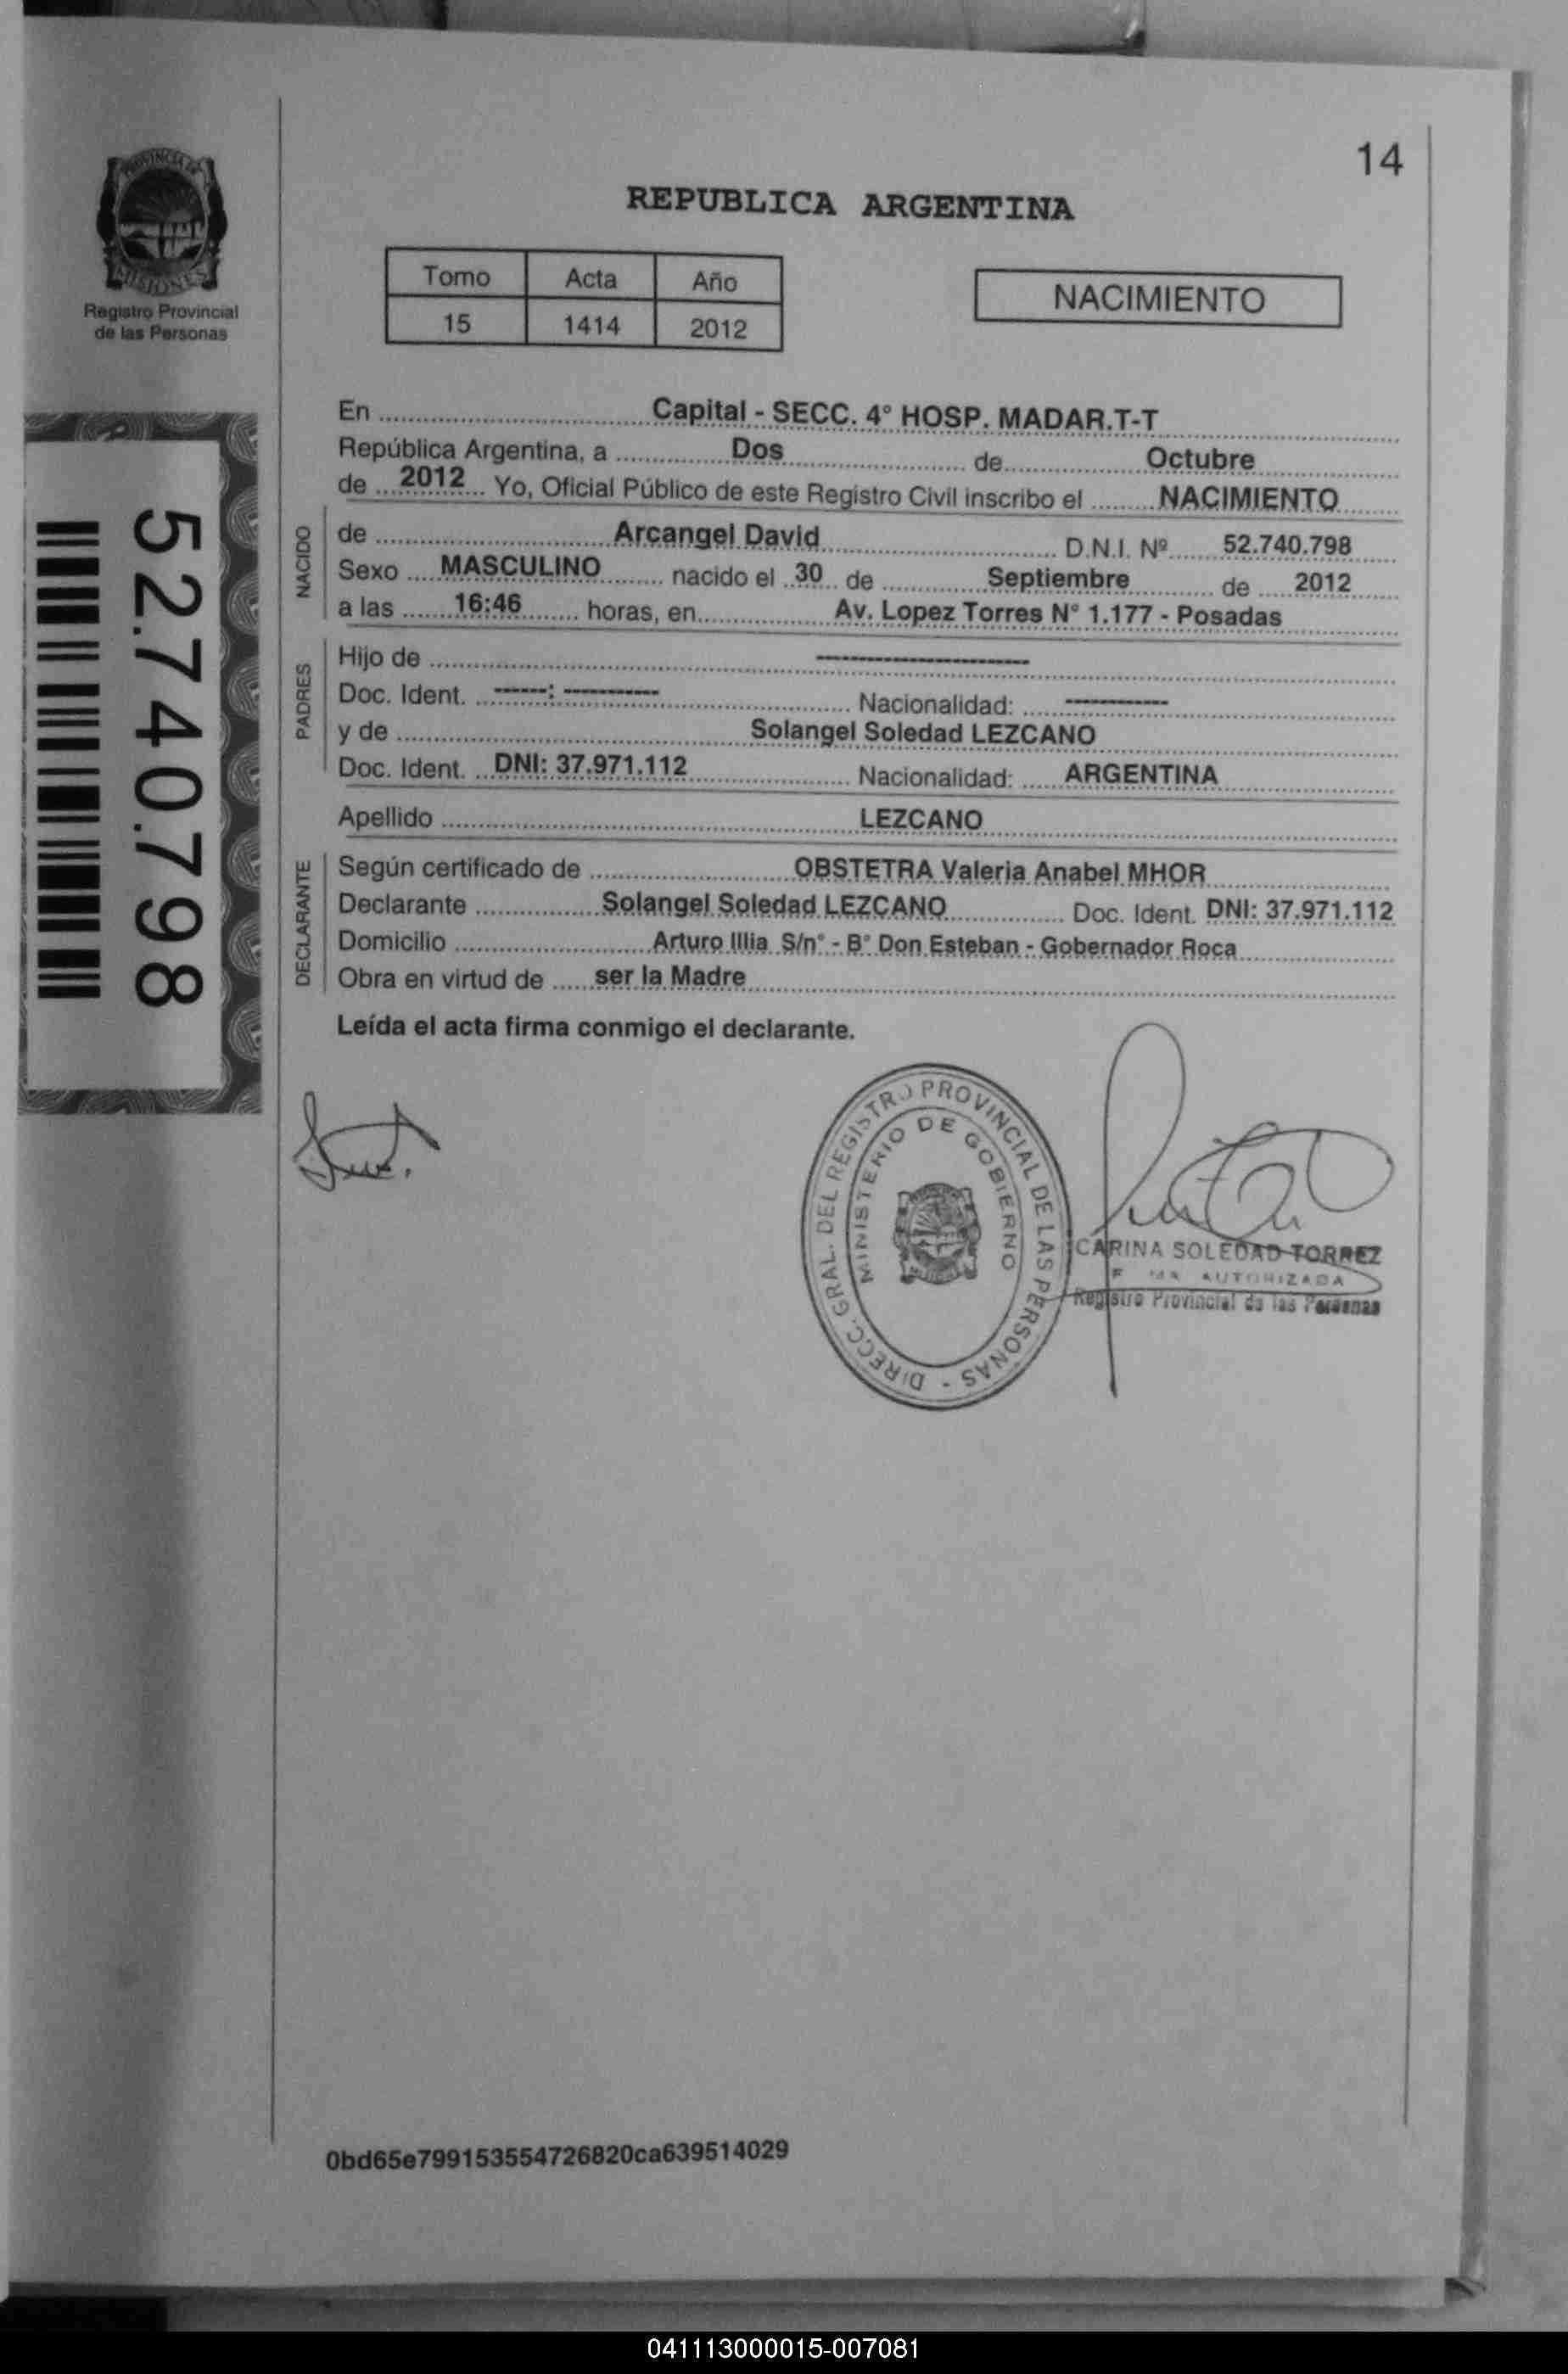 14
PROVINCIA DE
MISIONES
Registro Provincial
de las Personas
REPUBLICA ARGENTINA
Tomo Acta Año
15 1414 2012
NACIMIENTO
52.740.798
En Capital - SECC. 4° HOSP. MADAR.T-T
República Argentina, a Dos de Octubre
de 2012 Yo, Oficial Público de este Registro Civil inscribo el NACIMIENTO
NACIDO
de Arcangel David D.N.I. Nº 52.740.798
Sexo MASCULINO nacido el 30 de Septiembre de 2012
a las 16:46 horas, en Av. Lopez Torres N° 1.177 - Posadas
PADRES
Hijo de --------------------
Doc. Ident. ------: ----------- Nacionalidad: ------------
y de Solangel Soledad LEZCANO
Doc. Ident. DNI: 37.971.112 Nacionalidad: ARGENTINA
Apellido LEZCANO
DECLARANTE
Según certificado de OBSTETRA Valeria Anabel MHOR
Declarante Solangel Soledad LEZCANO Doc. Ident. DNI: 37.971.112
Domicilio Arturo Illia S/n° - B° Don Esteban - Gobernador Roca
Obra en virtud de ser la Madre
Leída el acta firma conmigo el declarante.
DIRECC. GRAL. DEL REGISTRO PROVINCIAL DE LAS PERSONAS -
MINISTERIO DE GOBIERNO
CARINA SOLEDAD TORREZ
AUTORIZADA
Registro Provincial de las Personas
0bd65e799153554726820ca639514029
041113000015-007081